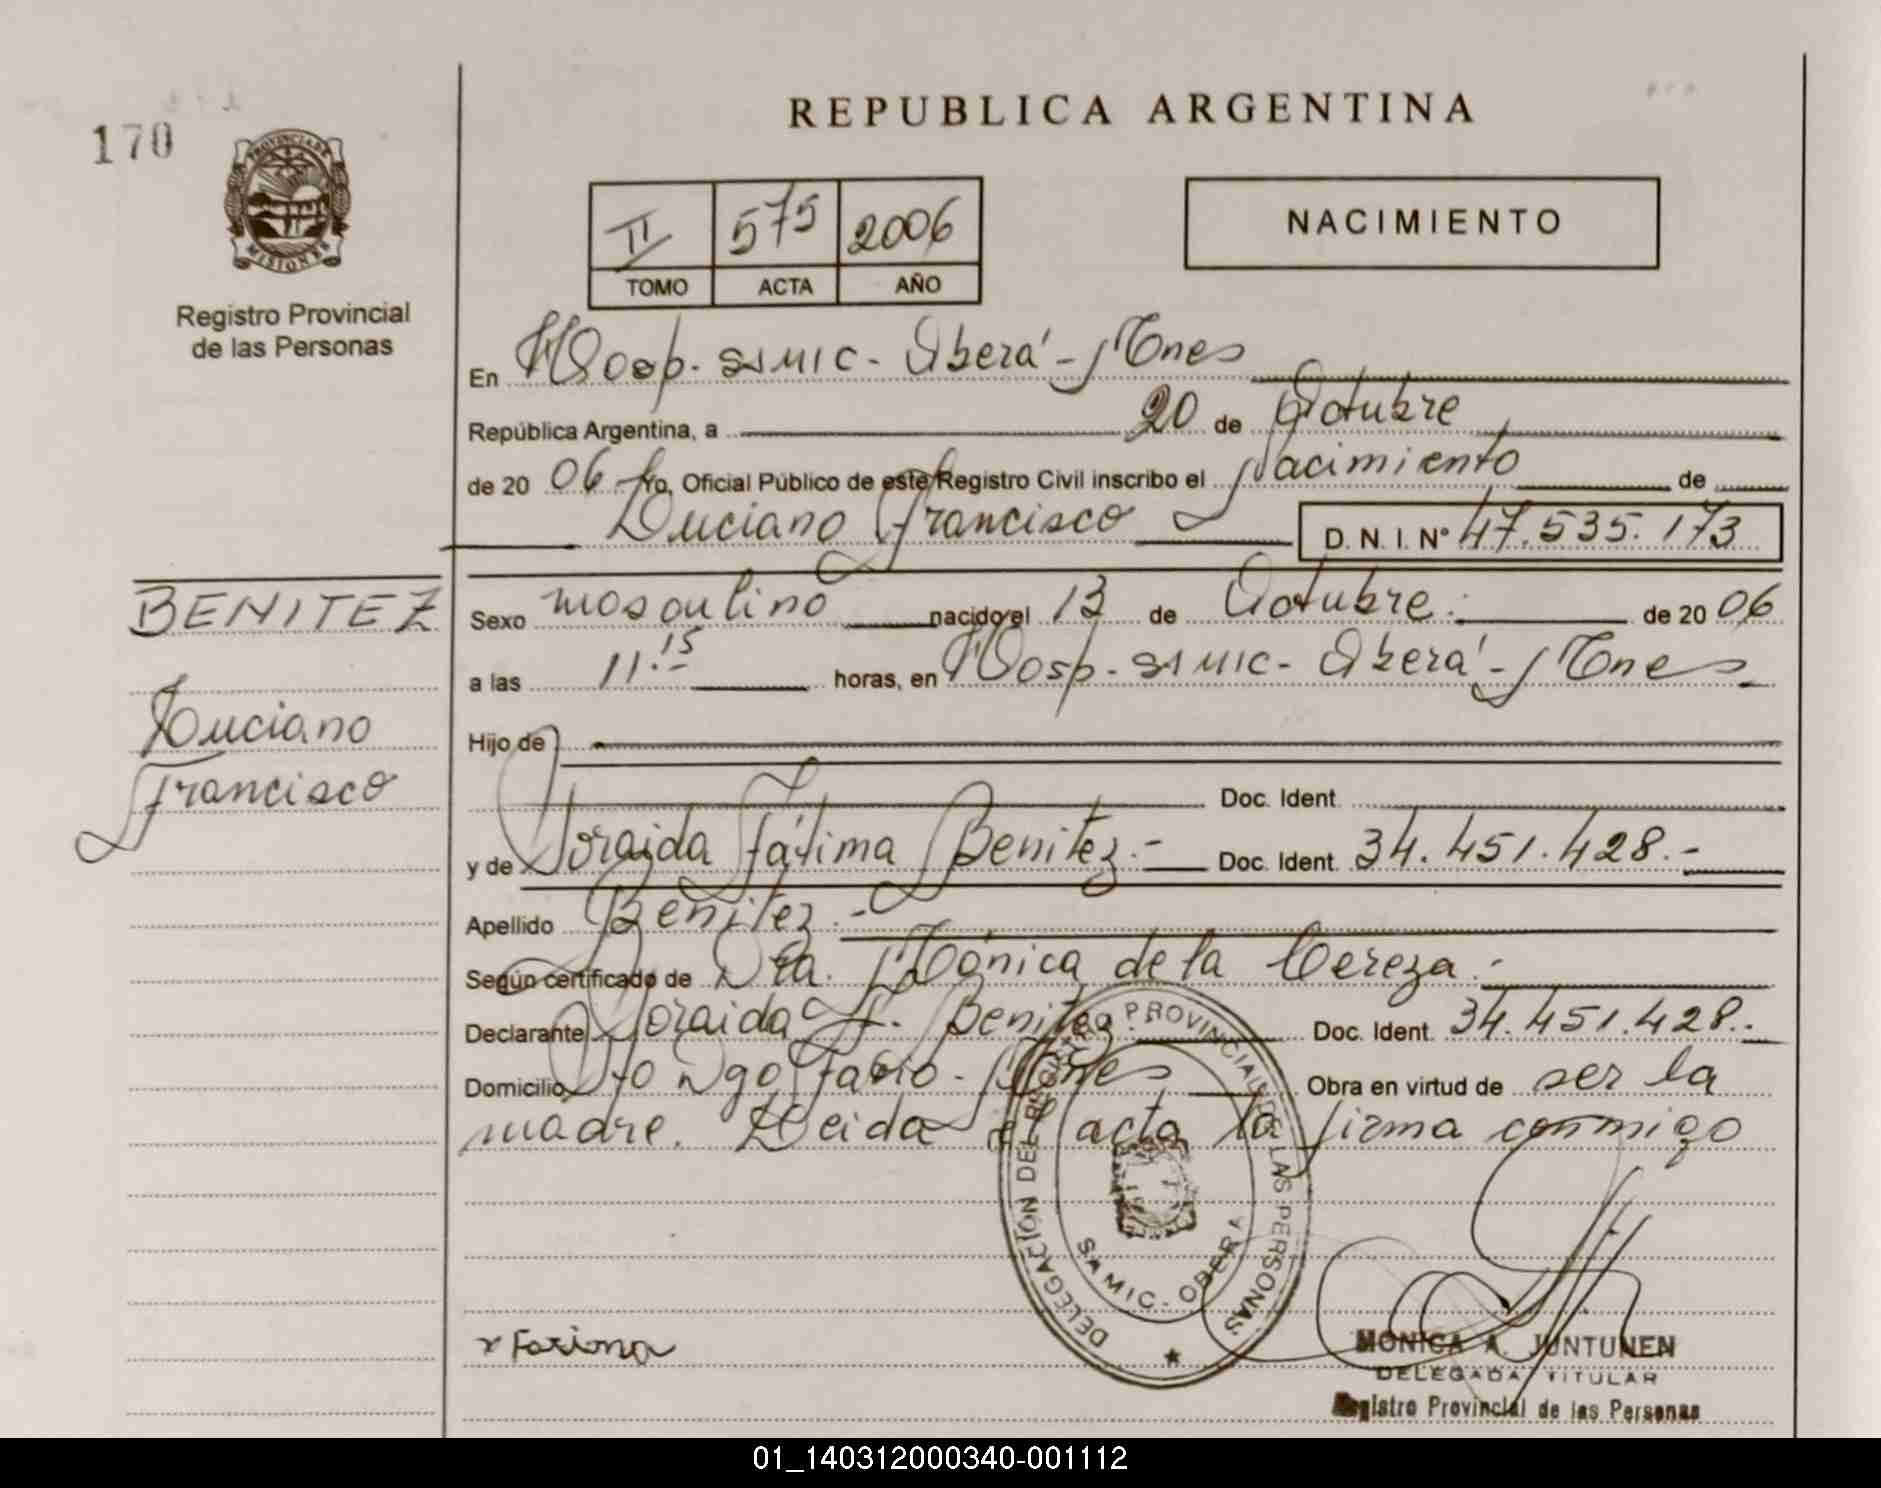 170
REPUBLICA ARGENTINA
PROVINCIA DE
MISIONES
Registro Provincial
de las Personas
II 575 2006
TOMO ACTA AÑO
NACIMIENTO
En Hosp. SAMIC - Oberá - Mnes
República Argentina, a 20 de Octubre
de 20 06 Yo, Oficial Público de este Registro Civil inscribo el Nacimiento de
Luciano Francisco D. N. I. N° 47.535.173
BENITEZ
Luciano
Francisco
Sexo masculino nacido el 13 de Octubre.- de 20 06
a las 11.15 horas, en Hosp. SAMIC - Oberá - Mnes
Hijo de
Doc. Ident.
y de Fátima Benitez.- Doc. Ident. 34.451.428.-
Apellido Benitez.-
Según certificado de Dra. Mónica de la Cereza.-
Declarante F. Benitez.- Doc. Ident. 34.451.428.-
Domicilio Mnes Obra en virtud de ser la
madre. Leida el acta la firma conmigo
DELEGACIÓN DEL REGISTRO PROVINCIAL DE LAS PERSONAS
SAMIC - OBERA
MONICA A. JUNTUNEN
DELEGADA TITULAR
Registro Provincial de las Personas
01_140312000340-001112